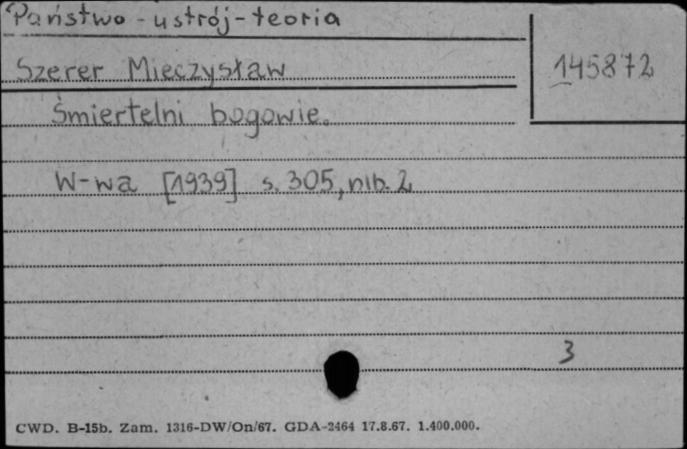 Państwo - ustrój - teoria
Szerer Mieczysław
145872
Śmiertelni bogowie.
W-wa [1939] s. 305, nlb. 2
3
CWD. B-15b. Zam. 1316-DW/On/67. GDA-2464 17.8.67. 1.400.000.